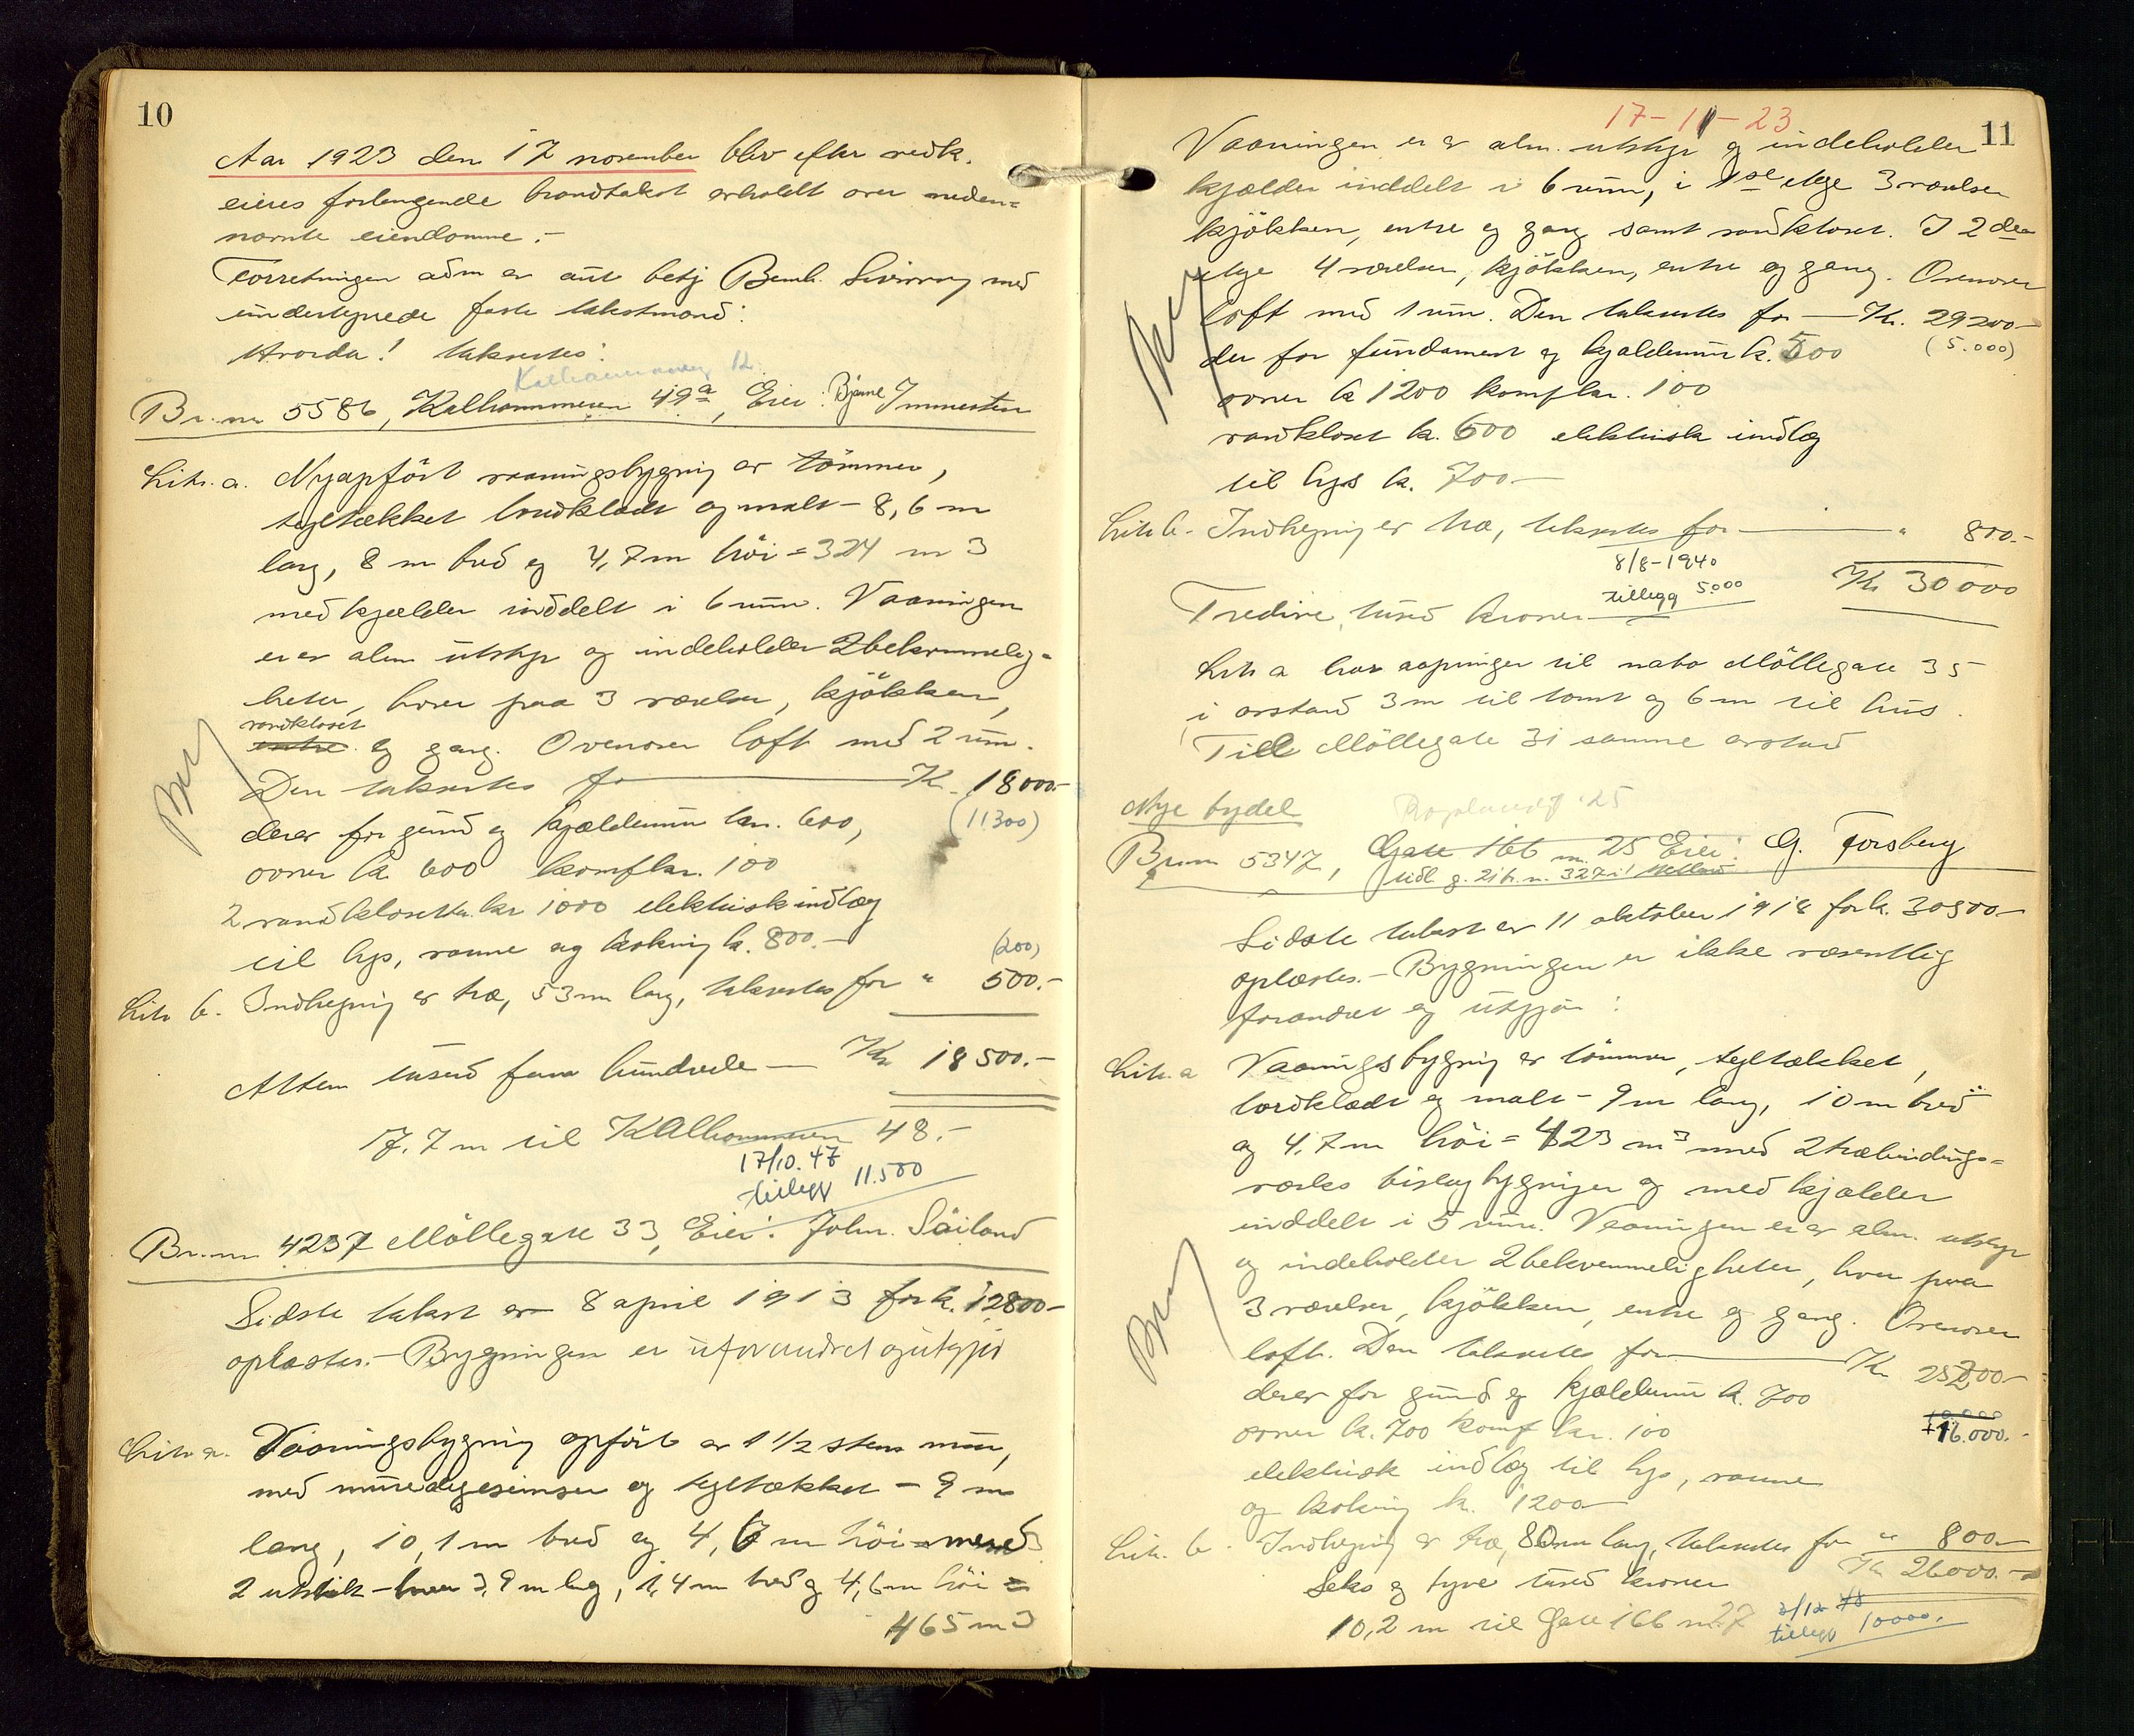 10
Aar 1923 den 17 november blev efter vedk.
eieres forlangende brandtakst avholdt over neden=
nævnte eiendomme.-
Forretningen adm av aut betj Bernh. med
undertegnede faste takstmænd:
Hvorda! takseres:
Br. nr 5586, Kalhammeren 49a, Eier: Bjarne Immerstein
Litr. a. Nyopført vaaningsbygning av tömmer,
tegltækket bordklædt og malt - 8,6 m
lang, 8 m bred og 4,7 m höi = 324 m3
med kjælder inddelt i 6 rum. Vaaningen
er av alm utstyr og indeholder 2 bekvemmelig=
heter, hver paa 3 værelser, kjökken,
vandkloset
entre og gang. Ovenover loft med 2 rum.
Den takseres for Kr. 18000.-
derav for grund og kjældermur kr. 600, (11300)
ovner kr 600 komfkr. 100
2 vandklosetter kr 1000 elektrisk indlæg
til lys, varme og kokning kr. 800.- (200)
Litr b. Indhegning av træ, 53 m lang, takseres for " 500.-
Atten tusend fem hundrede — Kr 18500.-
17.7 m til Kalhammeren 48.-
17/10. 47
tillegg 11.500
Br. nr 4237 Möllegate 33, Eier: John. Säiland
Sidste takst av 8 april 1913 for kr. 12800-
oplæstes.- Bygningen er uforandret og utgjör
Litr a. Vaaningsbygning opfört av 1 1/2 stens mur,
med murede gesimser og tegltækket - 9 m
lang, 10,1 m bred og 4,6 m höi = med
2 utstik - hver 3,9 m lang, 1,4 m bred og 4,6 m höi =
465 m3
17-11-23
11
Vaaningen er av alm. utstyr og indeholder
kjælder inddelt i 6 rum, i 1ste etage 3 værelser
kjökken, entre og gang samt vandkloset. I 2den
etage 4 værelser, kjökken, entre og gang. Ovenover
loft med 1 rum. Den takseres for — Kr. 29200-
der for fundament og kjældermur kr. 500 (5.000)
ovner kr 1200 komfkr. 100
vandkloset kr. 600 elektrisk indlæg
til lys kr. 700.-
Litr b. Indhegning av træ, takseres for — " 800.-
8/8-1940
Kr 30000
tillegg 5000
Tredive tusend kroner
Litr a har aapninger til nabo Möllegate 35
i avstand 3 m til tomt og 6 m til hus.
Till Möllegate 31 samme avstand
Nye bydel
25
Br nr 5347, Gate 166 nr. 25 Eier: G. Forsberg
tidl. g. 21 h. n. 327 i
Sidste takst av 11 oktober 1918 for kr. 30500-
oplæstes.- Bygningen er ikke væsentlig
forandret og utgjör:
Litr. a Vaaningsbygning av tömmer, tegltækket,
bordklædt og malt - 9 m lang, 10 m bred
og 4,7 m höi = 423 m3 med 2 træbindings=
verks bislagbygninger og med kjælder
inddelt i 5 rum. Vaaningen er av alm. utstyr
og indeholder 2 bekvemmeligheter, hver paa
3 værelser, kjökken, entre og gang. Ovenover
loft. Den takseres for — Kr 25200-
derav for grund og kjældermur kr. 700
10.000
ovner kr. 700 komf kr. 100 +16.000.-
elektrisk indlæg til lys, varme
og kokning kr. 1200-
Litr. b. Indhegning av træ, 80 m lang, takseres for " 800.-
Kr 26000.-
Seks og tyve tusend kroner
10,2 m til Gate 166 nr. 27
tillegg 10000.